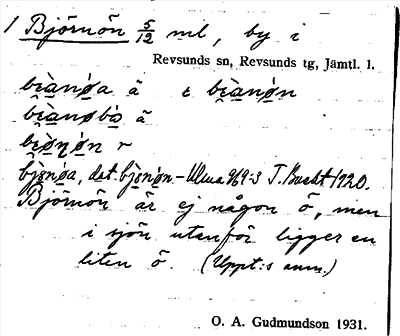 1 Björnön 5/12 ml, by i
Revsunds sn, Revsunds tg, Jämtl. l.
bi̯ànǿa å ɛ bi̯ànǿn
bi̯ànǿbà å
bi̯ònǿn r
bjønǿa, det. bjønǿn. – Ulma 969:3 T. Bucht 1920.
Björnön är ej någon ö, men
i sjön utanför ligger en
liten ö. (Uppt:s anm.)
O. A. Gudmundson 1931.